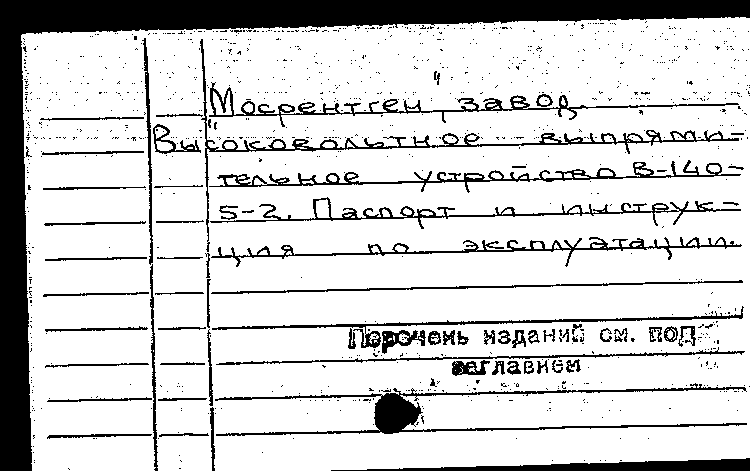 "Мосрентген", завод.
Высоковольтное выпрями-
тельное устройство В-140-
5-2. Паспорт и инструк-
ция по эксплуатации.
Перечень изданий см. под
заглавием